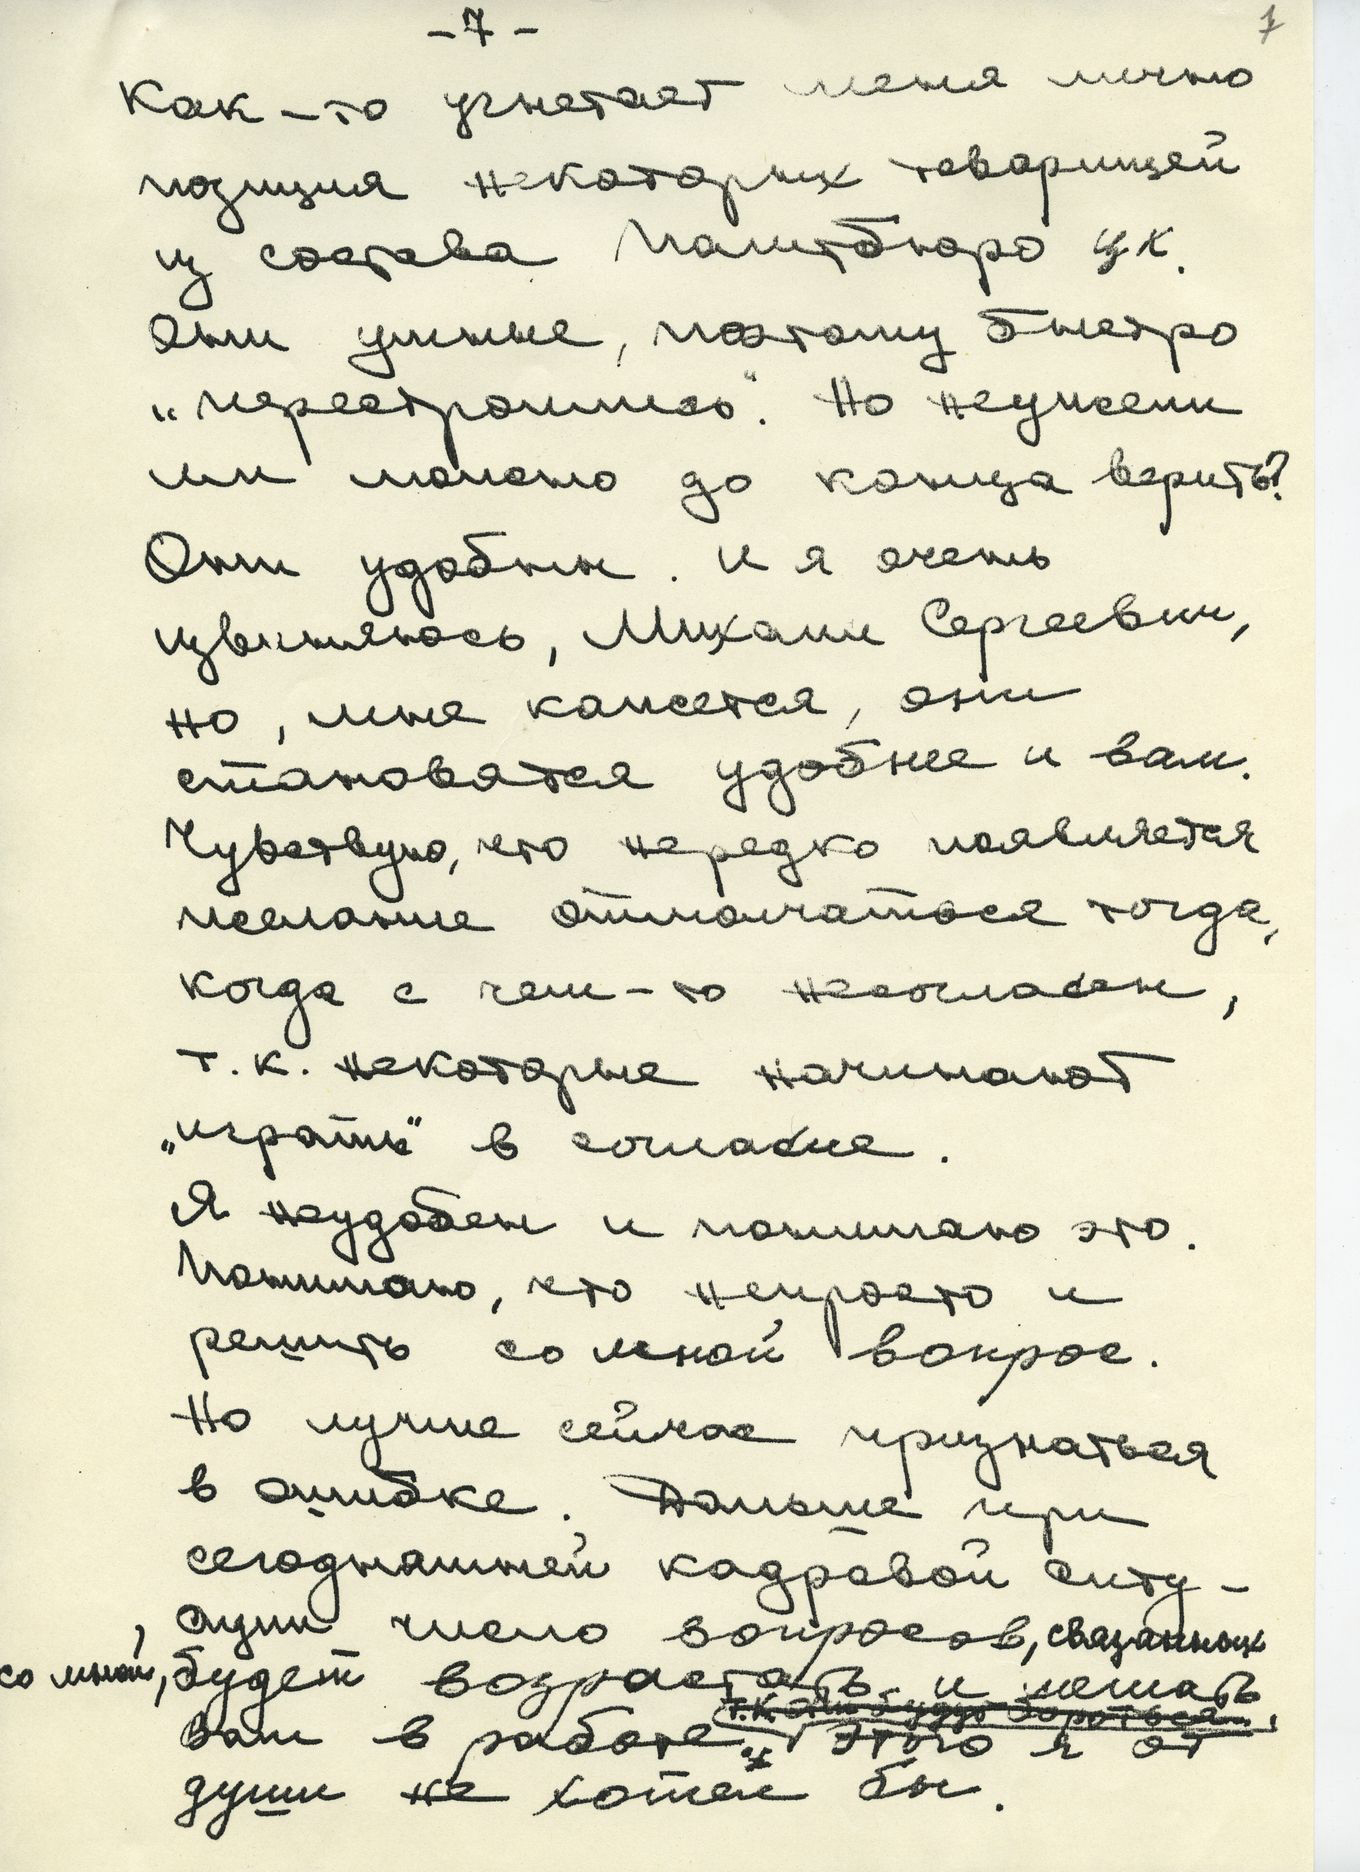 - 7 -
7
Как-то угнетает меня лично
позиция некоторых товарищей
из состава Политбюро ЦК.
Они умные, поэтому быстро
„перестроились". Но неужели
им можно до конца верить?
Они удобны. и я очень
извиняюсь, Михаил Сергеевич,
но, мне кажется, они
становятся удобнее и вам.
Чувствую, что нередко появляется
желание отмолчаться тогда,
когда с чем-то несогласен,
т.к. некоторые начинают
„играть" в согласие.
Я неудобен и понимаю это.
Понимаю, что непросто и
решить со мной вопрос.
Но лучше сейчас признаться
в ошибке. Дальше при
сегодняшней кадровой ситу-
ации число вопросов, связанных
со мной, будет возрастать и мешать
т.к. они будут бороться
вам в работе. Этого я от
души не хотел бы.